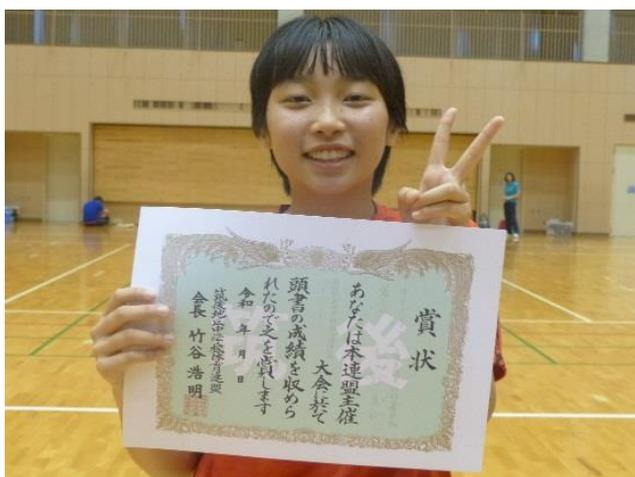 賞状
あなたは本連盟主催
大会に於て
頭書の成績を収めら
れたので之を賞します
令和 年 月 日
筑後地区中学校体育連盟
会長 竹谷浩明